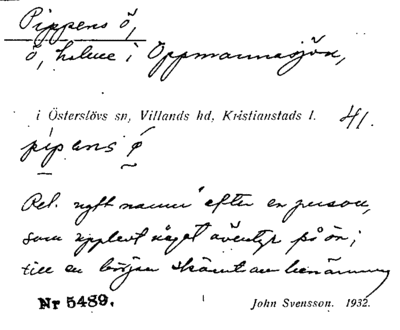 Pippens ö,
ö, halvö i Oppmannasjön,
i Österslövs sn, Villands hd, Kristianstads l. 41.
pipens ø
Rel. nytt namn efter en person,
som upplevt något äventyr på ön;
till en början skämtsam benämning
Nr 5489. John Svensson. 1932.